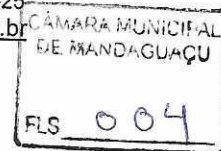 .br
CÂMARA MUNICIPAL
DE MANDAGUAÇU
FLS 004